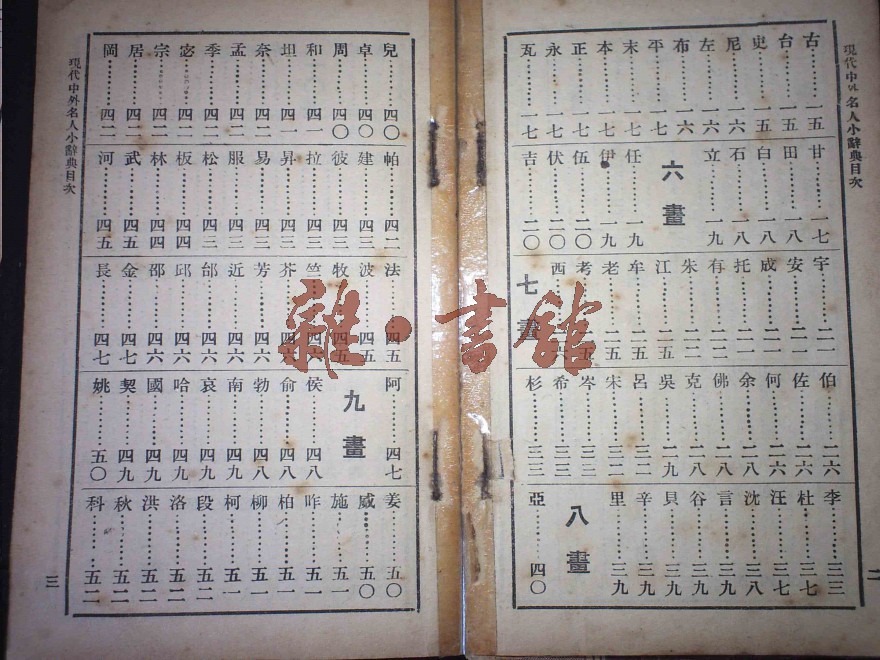 現代中外名人小辭典目次
古……一五
台……一五
史……一五
尼……一六
左……一六
布……一六
平……一七
末……一七
本……一七
正……一七
永……一七
瓦……一七
甘……一七
田……一八
白……一八
石……一八
立……一九
六畫
任……一九
伊……一九
伍……二〇
伏……二〇
吉……二〇
宇……二一
安……二一
成……二一
托……二一
有……二二
朱……二二
江……二五
牟……二五
老……二五
考……二五
西……二六
七畫
伯……二六
佐……二六
何……二六
余……二八
佛……二八
克……二八
吳……二九
呂……三二
宋……三二
岑……三三
希……三三
杉……三三
李……三三
杜……三七
汪……三七
沈……三八
言……三九
谷……三九
貝……三九
辛……三九
里……三九
八畫
亞……四〇
二
兒……四〇
卓……四〇
周……四〇
和……四一
坦……四一
奈……四二
孟……四二
季……四二
宓……四二
宗……四二
居……四二
岡……四二
帕……四二
建……四三
彼……四三
拉……四三
昇……四三
易……四三
服……四三
松……四三
板……四四
林……四四
武……四五
河……四五
法……四五
波……四五
牧……四五
竺……四六
芥……四六
芳……四六
近……四六
邰……四六
邱……四六
邵……四六
金……四七
長……四七
阿……四七
九畫
侯……四八
俞……四八
勃……四八
南……四九
哀……四九
哈……四九
國……四九
契……四九
姚……五〇
姜……五〇
威……五〇
施……五一
咋……五一
柏……五一
柳……五一
柯……五一
段……五二
洛……五二
洪……五二
秋……五二
科……五二
現代中外名人小辭典目次
三
雜·書館